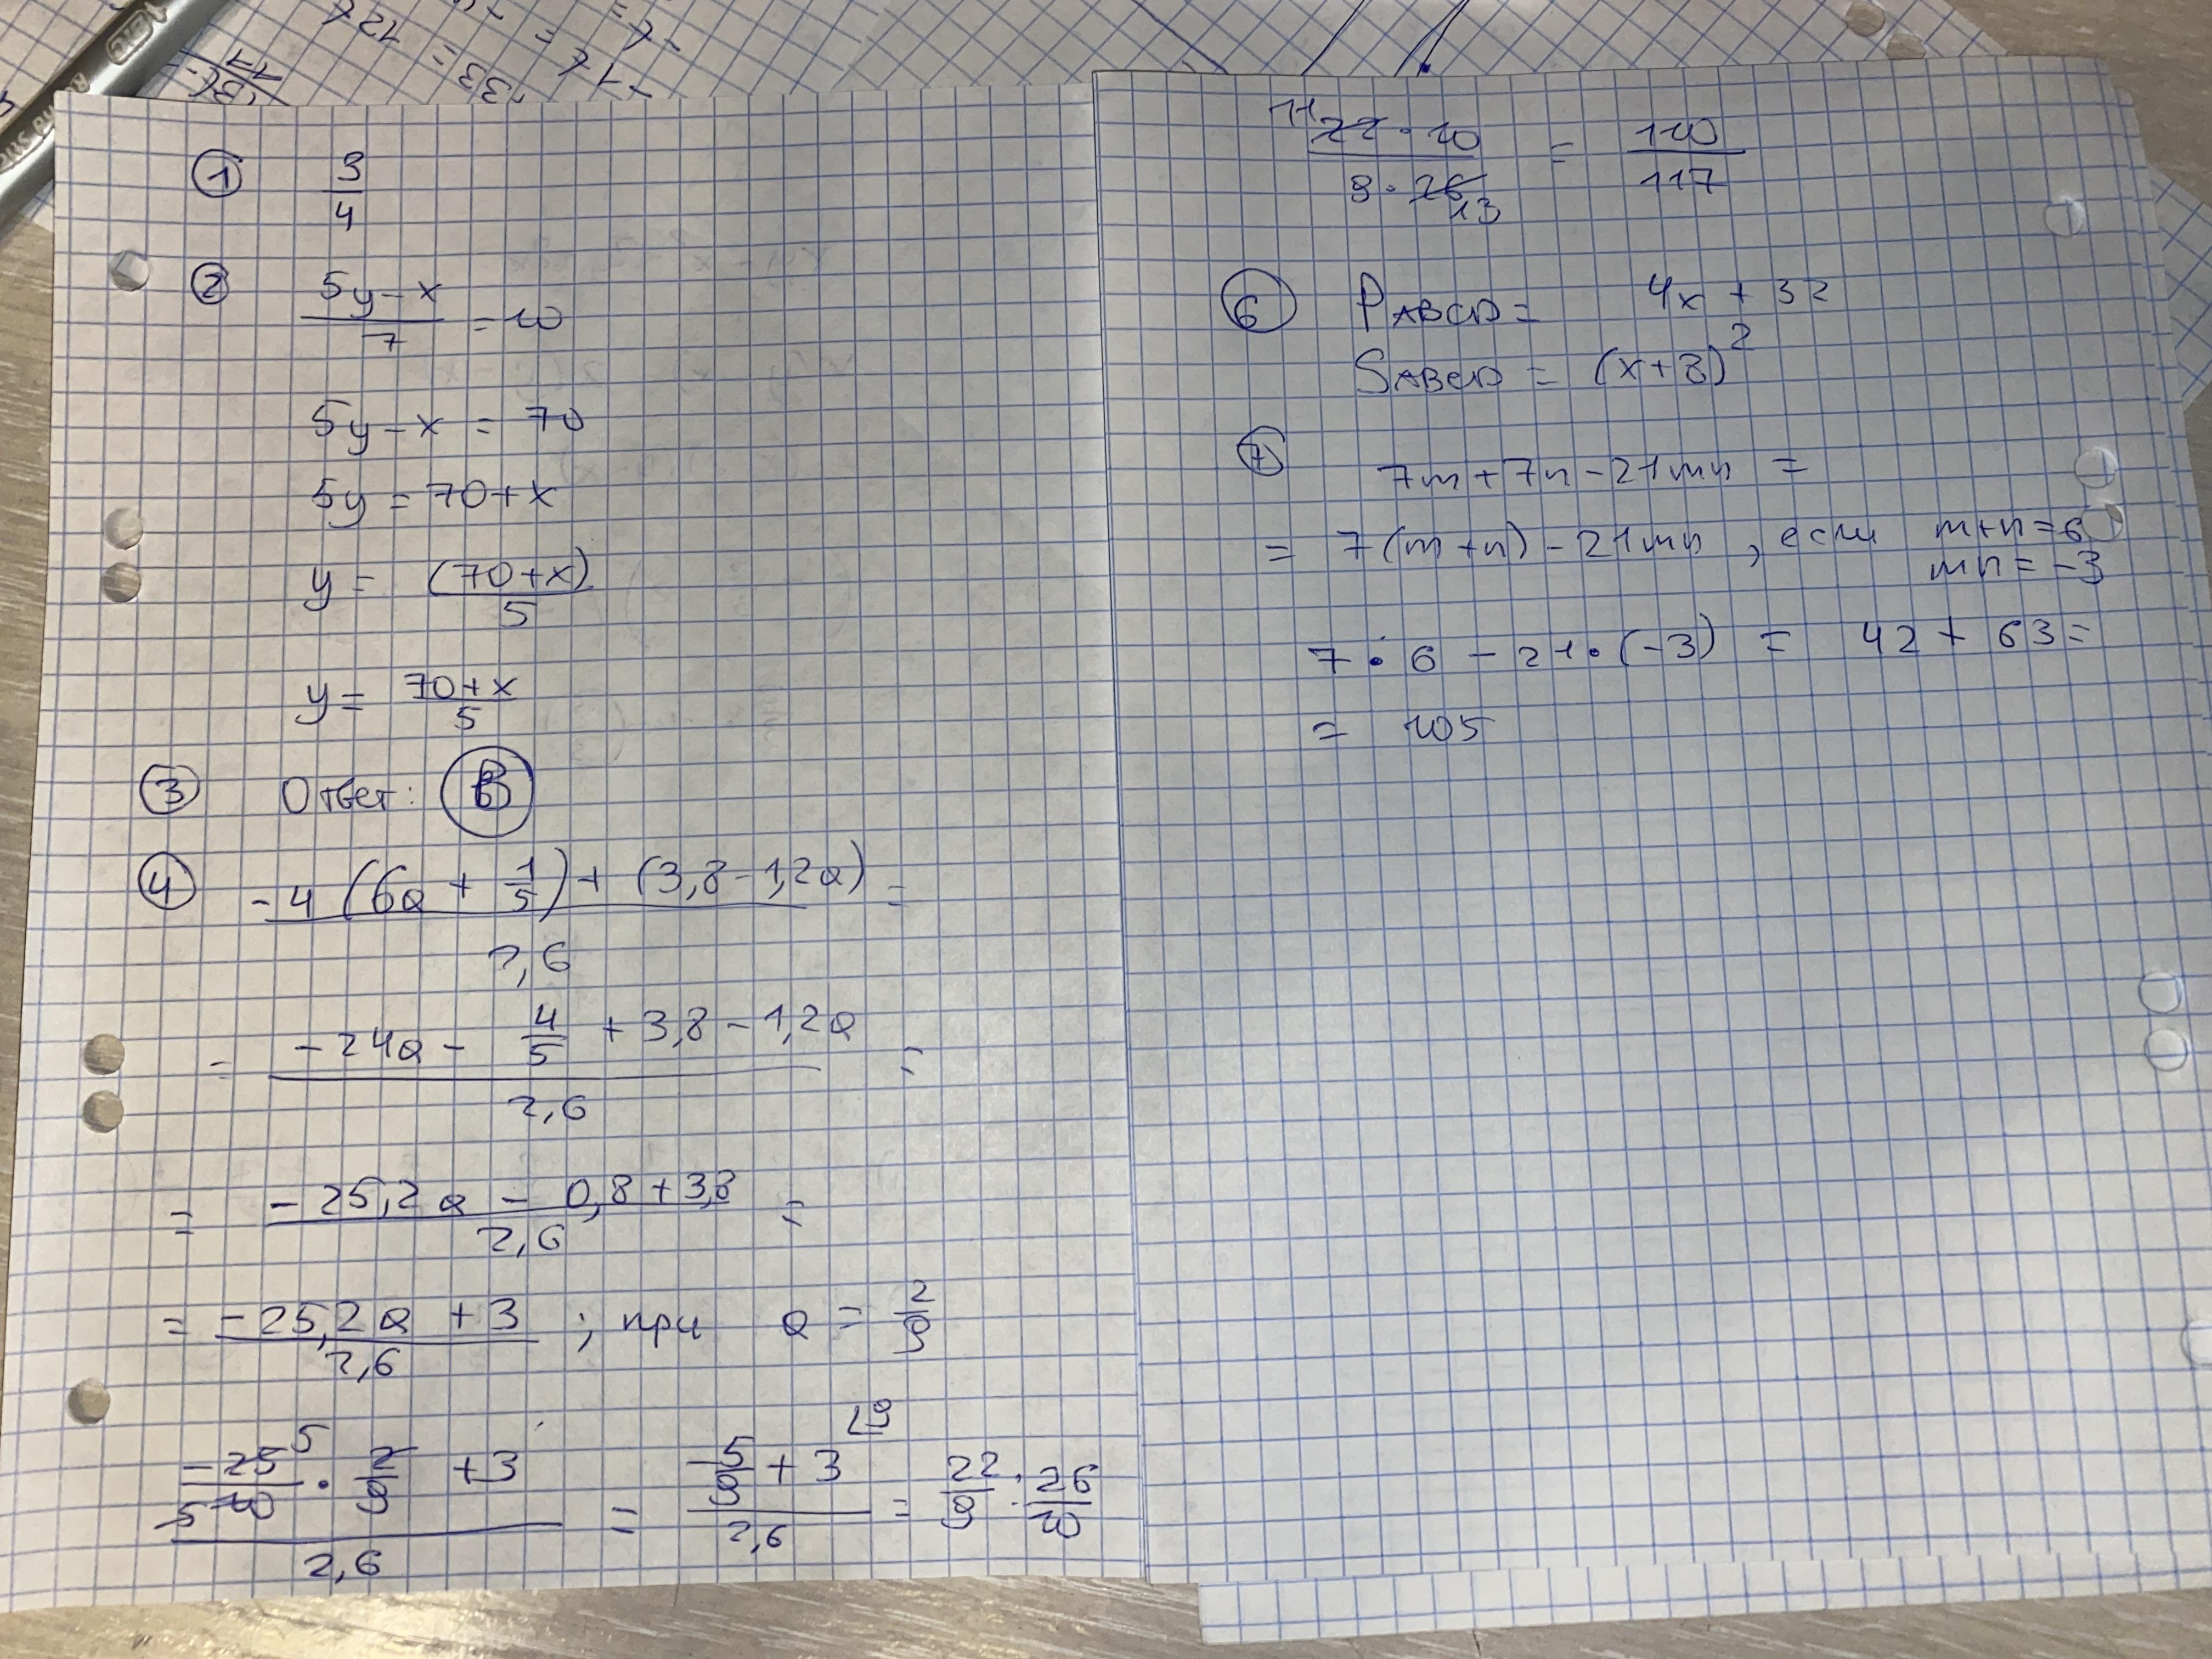 ① 3/4
② (5y - x)/7 = 10
5y - x = 70
5y = 70 + x
y = (70+x)/5
y = 70+x/5
③ Ответ: В
④ -4(6a + 1/5) + (3,8 - 1,2a) / 2,6 =
= -24a - 4/5 + 3,8 - 1,2a / 2,6 =
= -25,2a - 0,8 + 3,8 / 2,6 =
= -25,2a + 3 / 2,6 ; при a = 2/9
-25 5 / 5 10 · 2/9 + 3 / 2,6 = -5/9 + 3 ⌊9 / 2,6 = 22/9 : 26/10
11 22 · 10 / 9 · 26 13 = 110/117
⑥ P ABCD = 4x + 32
S ABCD = (x+8)²
⑦ 7m + 7n - 21mn =
= 7(m+n) - 21mn , если m+n = 6
mn = -3
7 · 6 - 21 · (-3) = 42 + 63 =
= 105